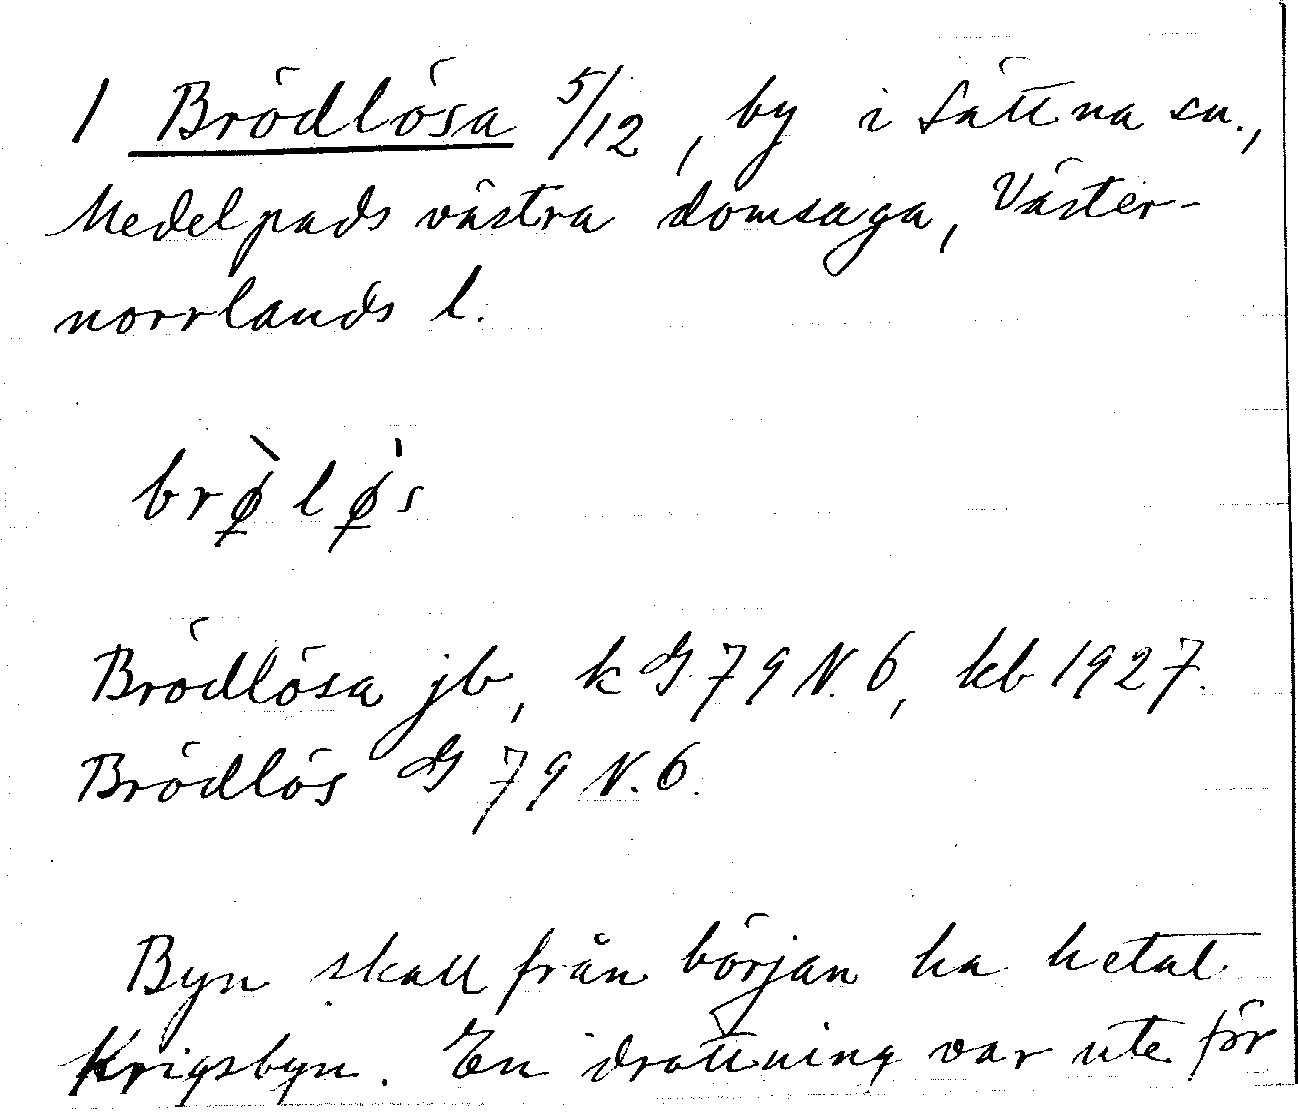 1 Brödlösa 5/12, by i Sättna sn.,
Medelpads västra domsaga, Väster-
norrlands l.
brø̀lø̍s
Brödlösa jb, k G 79 N. 6, kb 1927.
Brödlös G 79 N. 6.
Byn skall från början ha hetat
Krigsbyn. En drottning var ute för